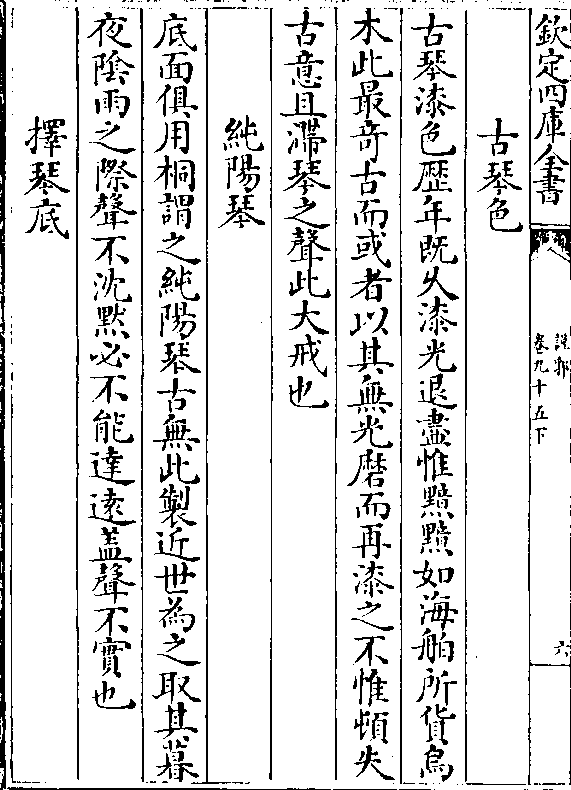 欽定四庫全書
說郛
卷九十五下
六
古琴色
古琴漆色歷年既久漆光退盡惟黯黯如海舶所貨烏
木此最奇古而或者以其無光磨而再漆之不惟頓失
古意且滯琴之聲此大戒也
純陽琴
底面俱用桐謂之純陽琴古無此製近世為之取其暮
夜陰雨之際聲不沈黙必不能達逺盖聲不實也
擇琴底